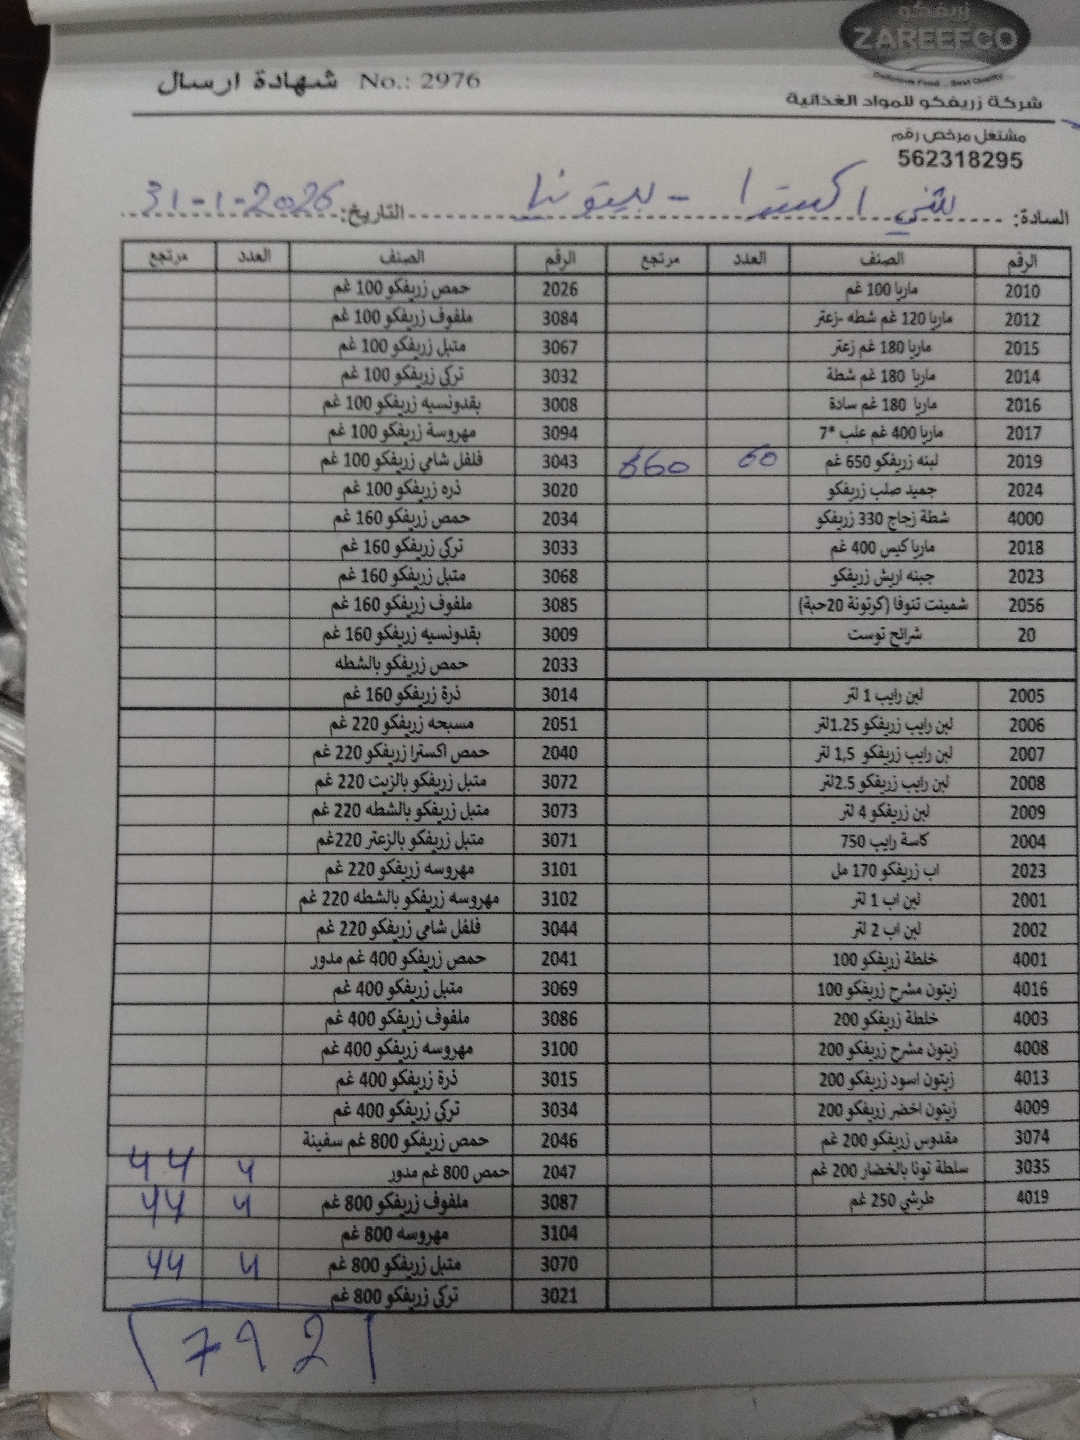 زريفكو
ZAREEFCO
Delicious Food... Best Quality
شركة زريفكو للمواد الغذائية
شهادة ارسال No.: 2976
مشتغل مرخص رقم
562318295
السادة: اكسترا - بيتونيا التاريخ: 31-1-2026
الرقم الصنف العدد مرتجع الرقم الصنف العدد مرتجع
2010 ماريا 100 غم 2026 حمص زريفكو 100 غم
2012 ماريا 120 غم شطه -زعتر 3084 ملفوف زريفكو 100 غم
2015 ماريا 180 غم زعتر 3067 متبل زريفكو 100 غم
2014 ماريا 180 غم شطة 3032 تركي زريفكو 100 غم
2016 ماريا 180 غم سادة 3008 بقدونسيه زريفكو 100 غم
2017 ماريا 400 غم علب *7 3094 مهروسة زريفكو 100 غم
2019 لبنه زريفكو 650 غم 60 660 3043 فلفل شامي زريفكو 100 غم
2024 جميد صلب زريفكو 3020 ذره زريفكو 100 غم
4000 شطة زجاج 330 زريفكو 2034 حمص زريفكو 160 غم
2018 ماريا كيس 400 غم 3033 تركي زريفكو 160 غم
2023 جبنه اريش زريفكو 3068 متبل زريفكو 160 غم
2056 شمينت تنوفا (كرتونة 20حبة) 3085 ملفوف زريفكو 160 غم
20 شرائح توست 3009 بقدونسيه زريفكو 160 غم
2033 حمص زريفكو بالشطه
2005 لبن رايب 1 لتر 3014 ذرة زريفكو 160 غم
2006 لبن رايب زريفكو 1.25لتر 2051 مسبحه زريفكو 220 غم
2007 لبن رايب زريفكو 1,5 لتر 2040 حمص اكسترا زريفكو 220 غم
2008 لبن رايب زريفكو 2.5لتر 3072 متبل زريفكو بالزيت 220 غم
2009 لبن زريفكو 4 لتر 3073 متبل زريفكو بالشطه 220 غم
2004 كاسة رايب 750 3071 متبل زريفكو بالزعتر 220غم
2023 اب زريفكو 170 مل 3101 مهروسه زريفكو 220 غم
2001 لبن اب 1 لتر 3102 مهروسه زريفكو بالشطه 220 غم
2002 لبن اب 2 لتر 3044 فلفل شامي زريفكو 220 غم
4001 خلطة زريفكو 100 2041 حمص زريفكو 400 غم مدور
4016 زيتون مشرح زريفكو 100 3069 متبل زريفكو 400 غم
4003 خلطة زريفكو 200 3086 ملفوف زريفكو 400 غم
4008 زيتون مشرح زريفكو 200 3100 مهروسه زريفكو 400 غم
4013 زيتون اسود زريفكو 200 3015 ذرة زريفكو 400 غم
4009 زيتون اخضر زريفكو 200 3034 تركي زريفكو 400 غم
3074 مقدوس زريفكو 200 غم 2046 حمص زريفكو 800 غم سفينة
3035 سلطة تونا بالخضار 200 غم 2047 حمص 800 غم مدور 4 44
4019 طرشي 250 غم 3087 ملفوف زريفكو 800 غم 4 44
3104 مهروسه 800 غم
3070 متبل زريفكو 800 غم 4 44
3021 تركي زريفكو 800 غم
792